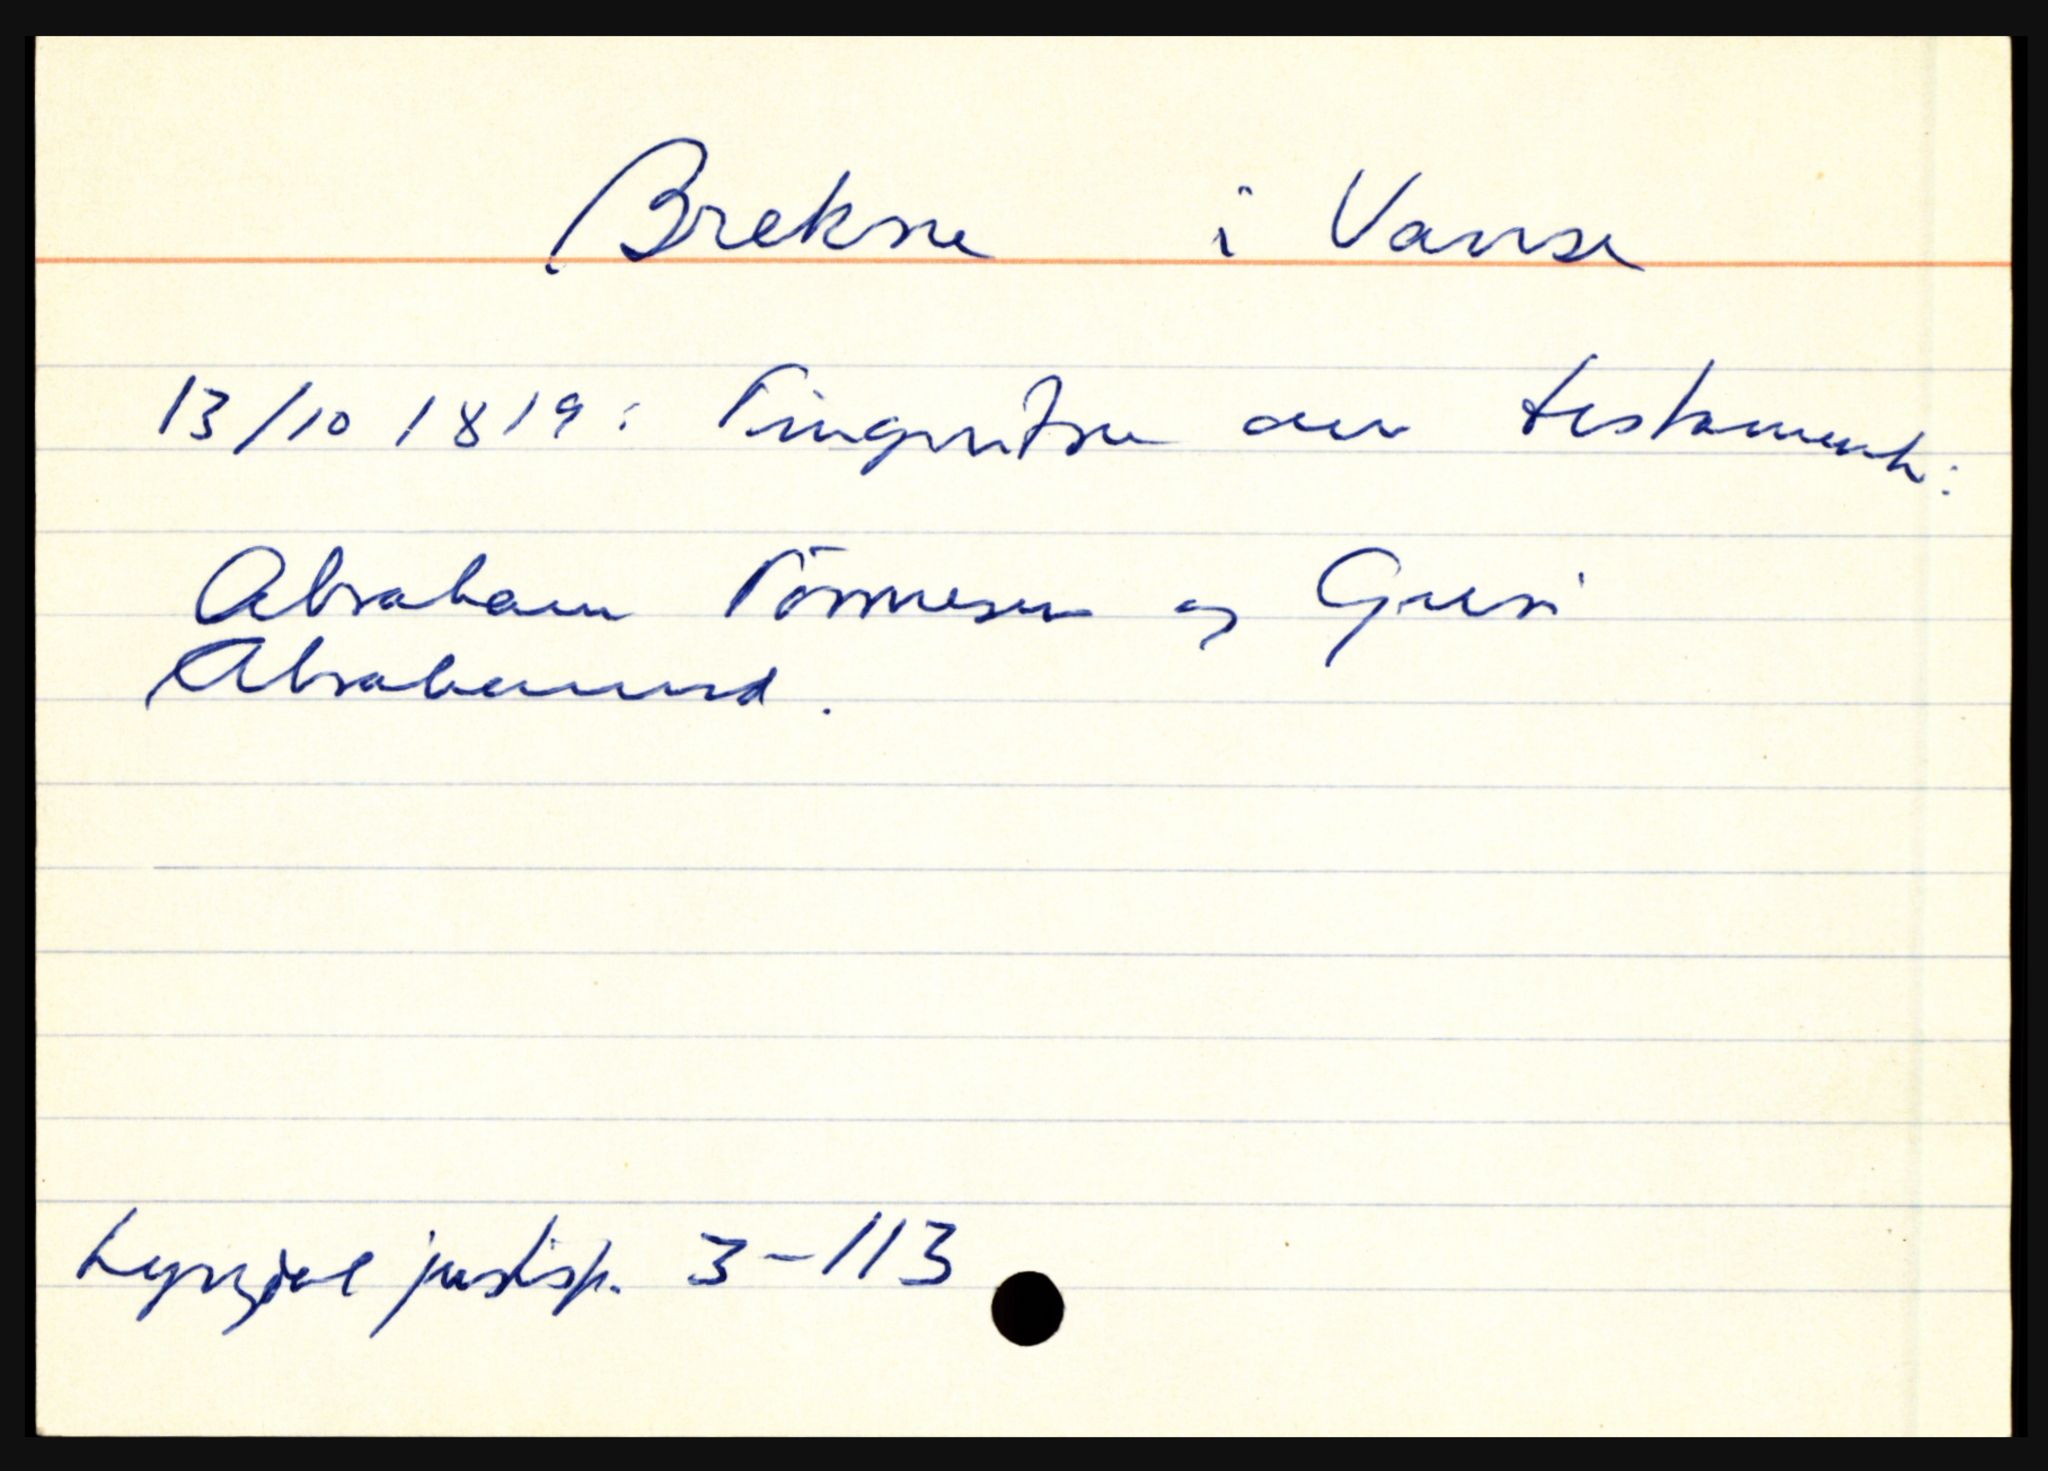 Brekne i Vanse
13/10 1819: Tingvitne om testament:
Abraham Tönnesen og Guri
Abrahamsd.
Lyngdal justisp. 3-113